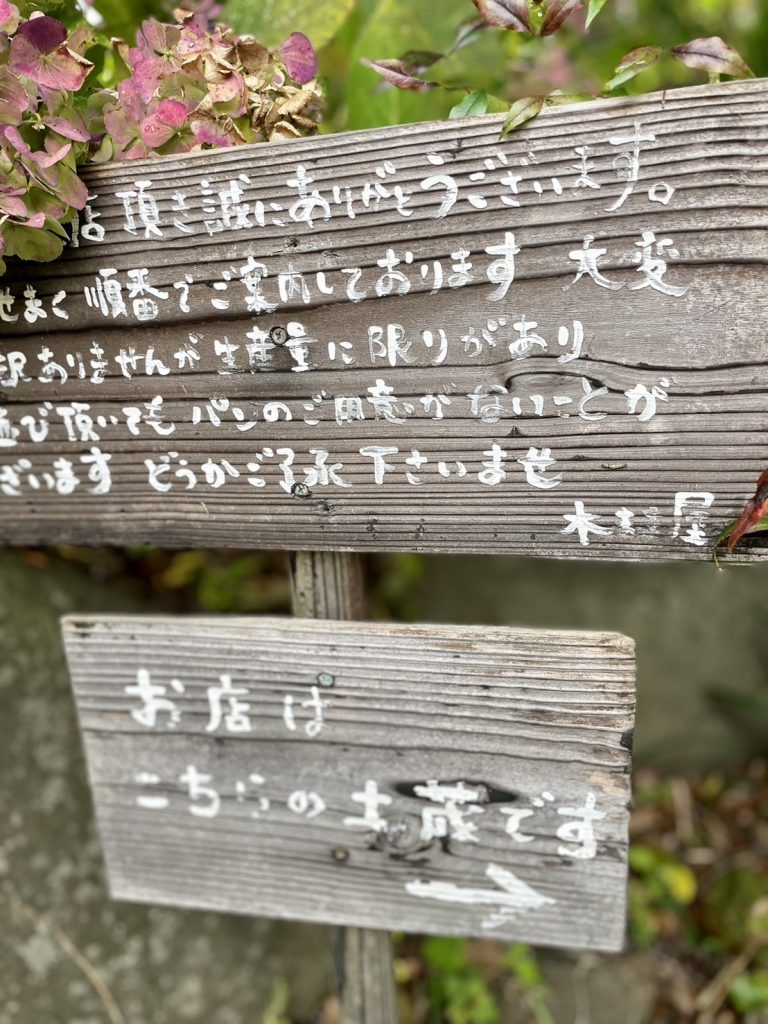 店頂き誠にありがとうございます。
せまく順番でご案内しております 大変
訳ありませんが生産量に限りがあり
並び頂いても パンのご用意がないことが
ざいます どうかご了承下さいませ
木村屋
お店は
こちらの土蔵です
→